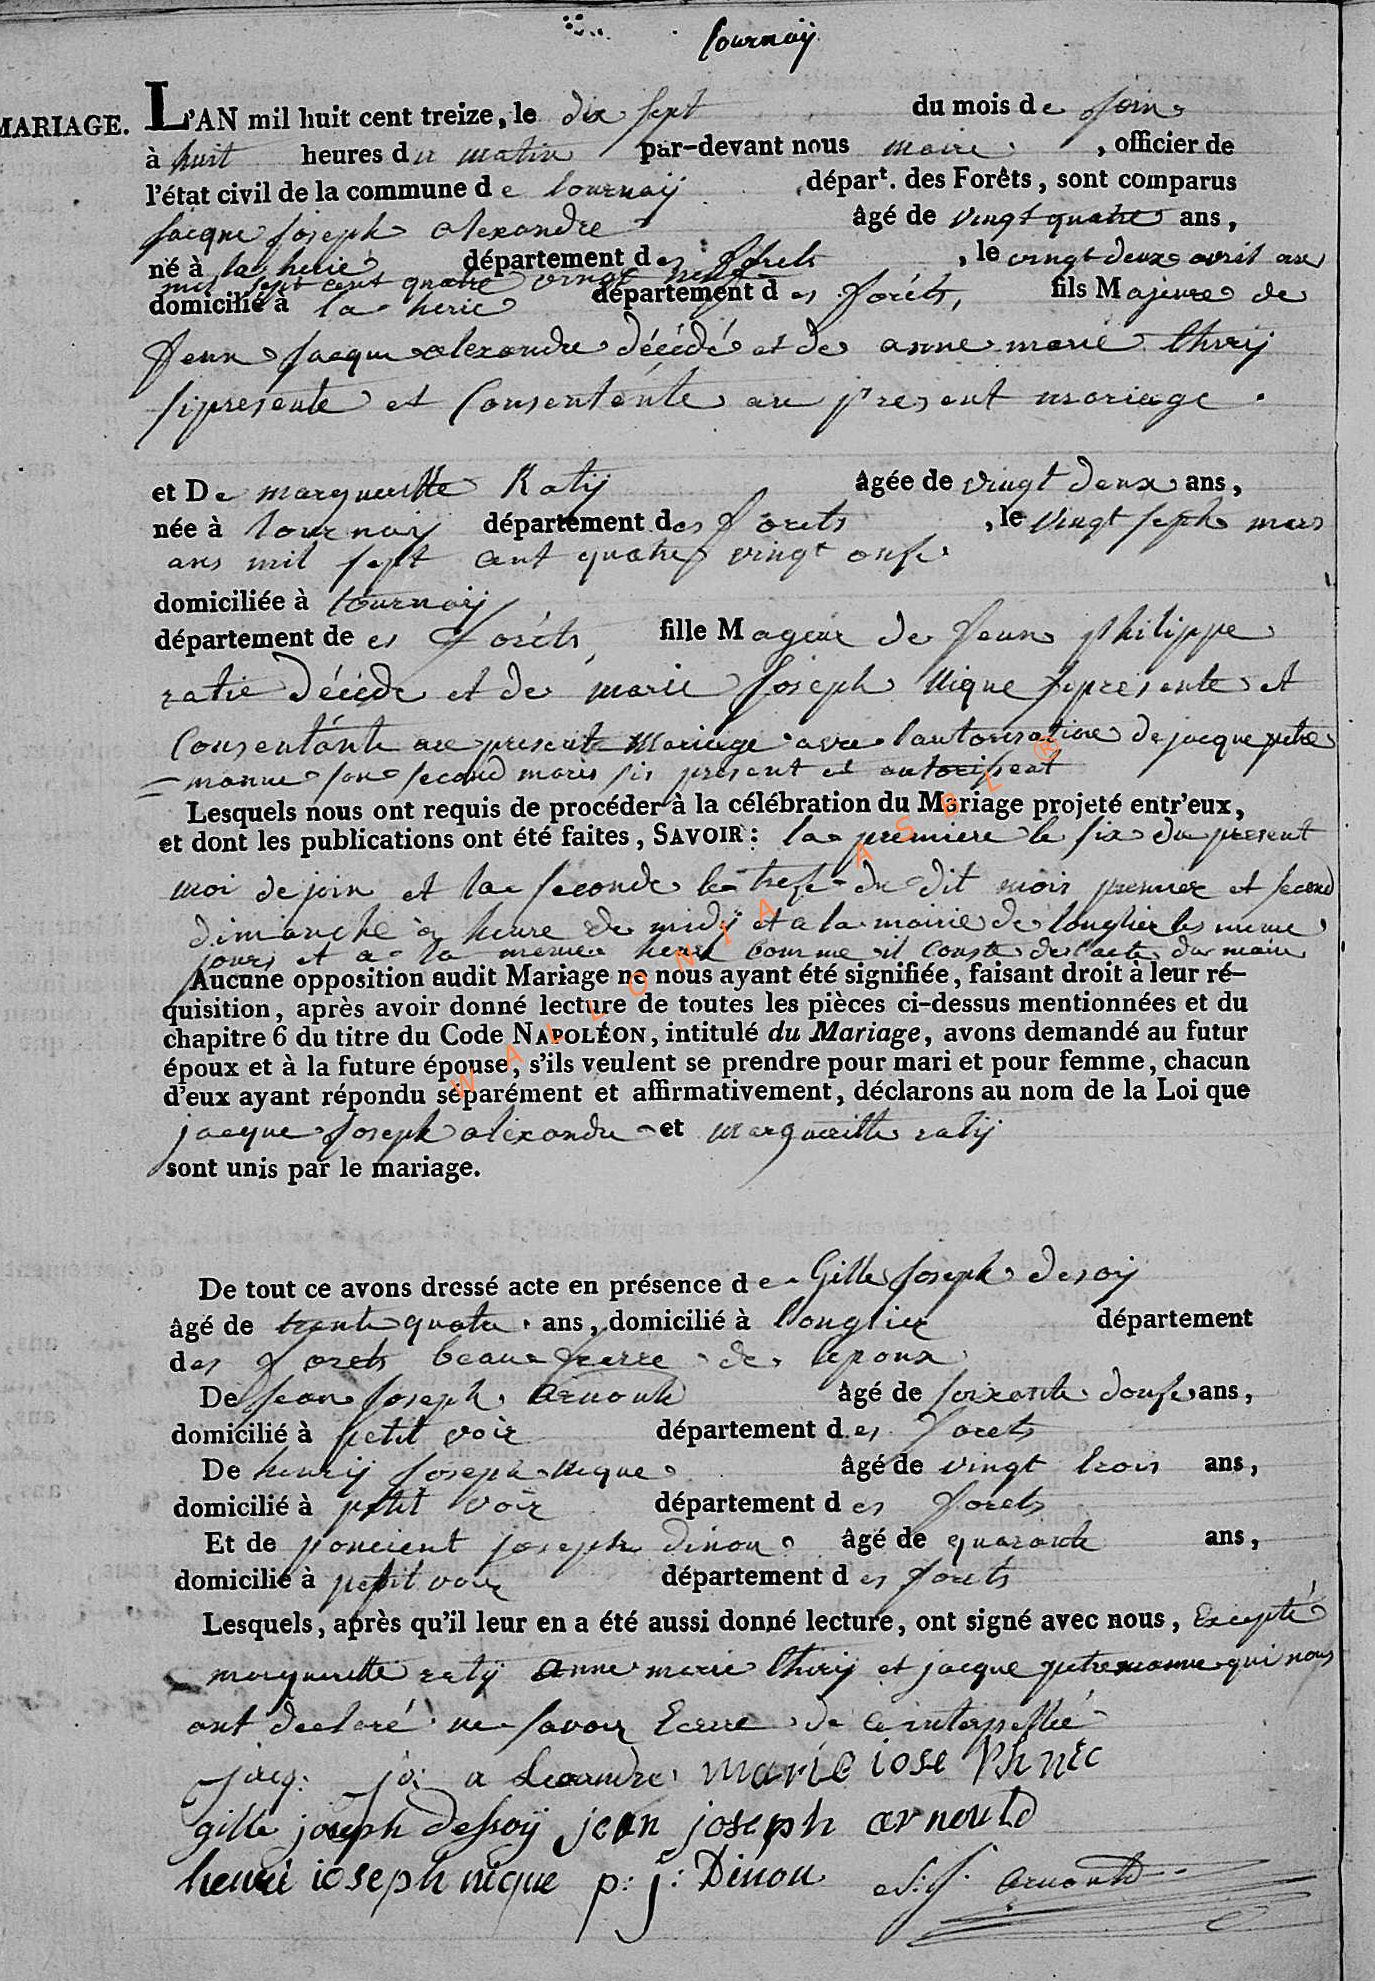 tournaÿ
MARIAGE.
L'AN mil huit cent treize, le dix sept du mois de join
à huit heures du matin par-devant nous maire, officier de
l'état civil de la commune de tournaÿ départ. des Forêts, sont comparus
jacque joseph alexandre âgé de vingt quatre ans,
né à laherie département des forets, le vingt deux avril an
mil sept cent quatre vingt neuf
domicilié à la herie département des foréts, fils Majeure de
jean jacque alexandre décédé et de anne marie thirÿ
si presente et Consenténte au present mariage.
et De margueritte Ratÿ âgée de vingt deux ans,
née à tournaÿ département des forets, le vingt sept mars
ans mil sept cent quatre vingt onse
domiciliée à tournaÿ
département de es foréts, fille Mageur de jean philippe
ratie décéde et de marie joseph Nique si présente et
Consentánte au present Mariage avec l'autorisation de jacque petre
manne son second maris sis présent et autorisent
Lesquels nous ont requis de procéder à la célébration du Mariage projeté entr'eux,
et dont les publications ont été faites, SAVOIR: la premiere le six du present
moi de join et la seconde le trese du dit mois premier et second
dimanche à heure de midÿ et a la mairie de longlier les meme
jours et a la meme heur comme il conste de l'acte du maire
Aucune opposition audit Mariage ne nous ayant été signifiée, faisant droit à leur ré-
quisition, après avoir donné lecture de toutes les pièces ci-dessus mentionnées et du
chapitre 6 du titre du Code NAPOLÉON, intitulé du Mariage, avons demandé au futur
époux et à la future épouse, s'ils veulent se prendre pour mari et pour femme, chacun
d'eux ayant répondu séparément et affirmativement, déclarons au nom de la Loi que
jacque joseph alexandre et margueritte ratÿ
sont unis par le mariage.
De tout ce avons dressé acte en présence de Gille joseph desoÿ
âgé de trente quatre ans, domicilié à longlier département
des forets beau frerre de l'epoux
De jean joseph arnould âgé de soixante douse ans,
domicilié à petit voir département des forets
De henrÿ joseph nique âgé de vingt trois ans,
domicilié à petit voir département des forets
Et de poncient joseph dinon âgé de quarante ans,
domicilié à petit voir département des forets
Lesquels, après qu'il leur en a été aussi donné lecture, ont signé avec nous, Excepté
margueritte ratÿ anne marie thirÿ et jacque petremanne qui nous
ont declaré ne savoir Ecrire de ce interpellé
jacq: jo: alexandre marie iose ph nic
gille joseph dessoÿ jean joseph arnould
henri ioseph nique p: j: Dinon arnould
WALLONIA ASBL ®